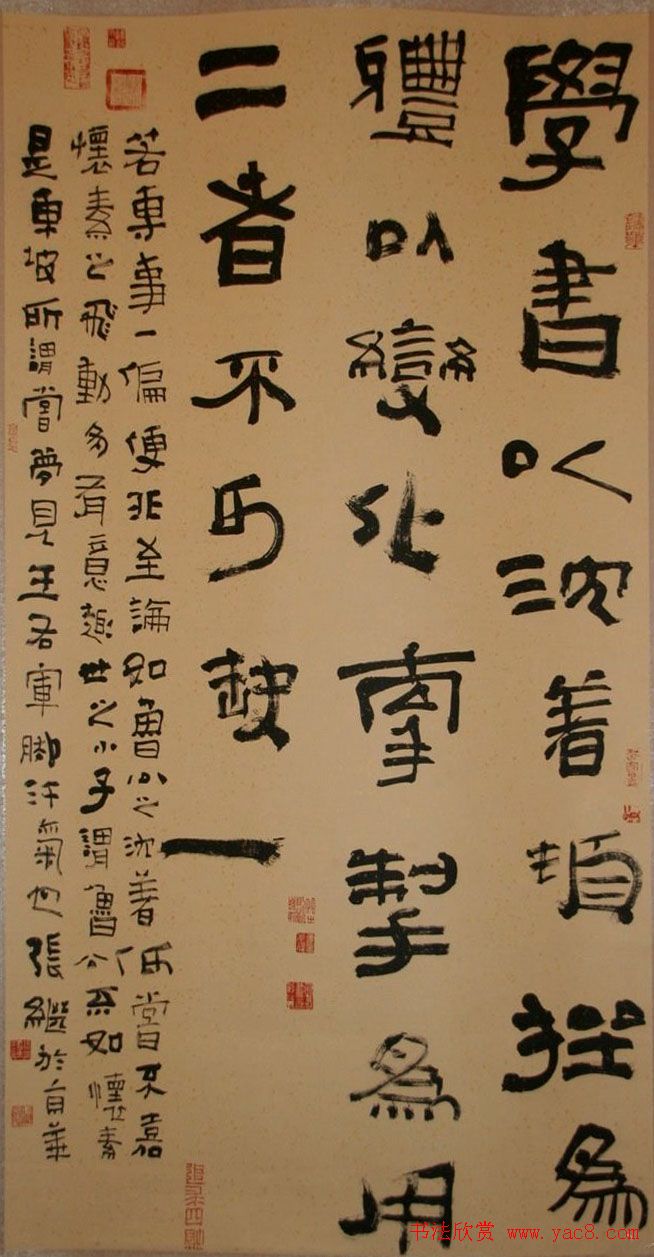 學書以沈着頓挫為
體以變化牽掣為用
二者不可缺一
若專事一偏便非至論如魯公之沈着何嘗不嘉
懷素之飛動多有意趣世之小子謂魯公不如懷素
是東坡所謂嘗夢見王右軍脚汗氣也張繼於華
书法欣赏 www.yac8.com